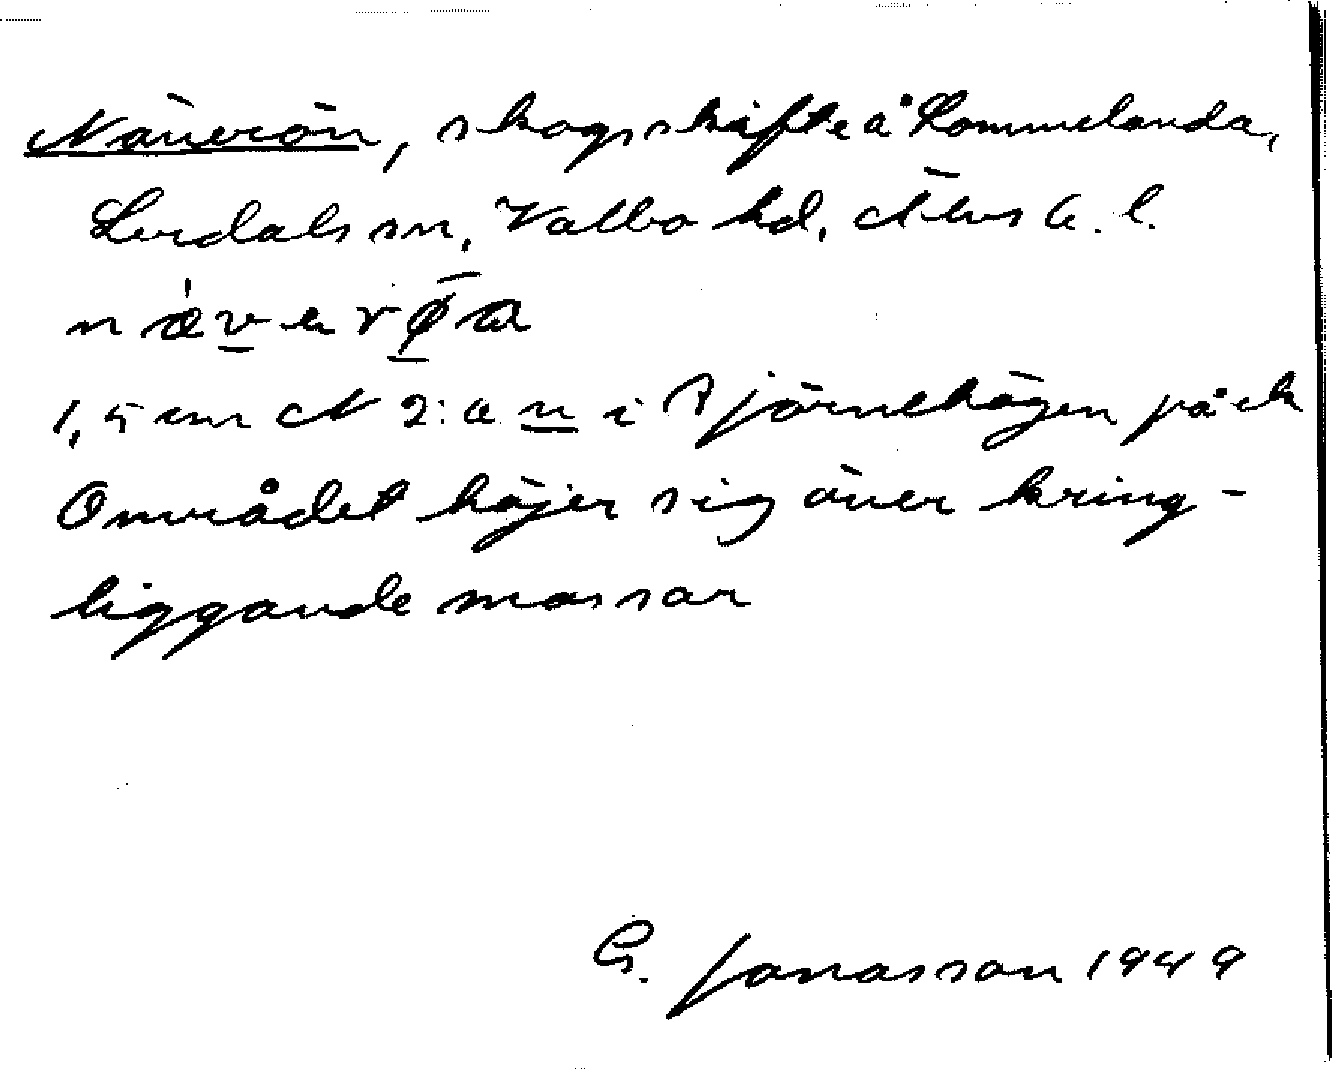 Näverön, skogsskifte å Lommelanda,
Lerdals sn, Valbo hd, Älvsb. l.
nävverøa
1,5 cm N 2:a n i Björnehögen på ek
Området höjer sig över kring-
liggande mossar
G. Jonasson 1949